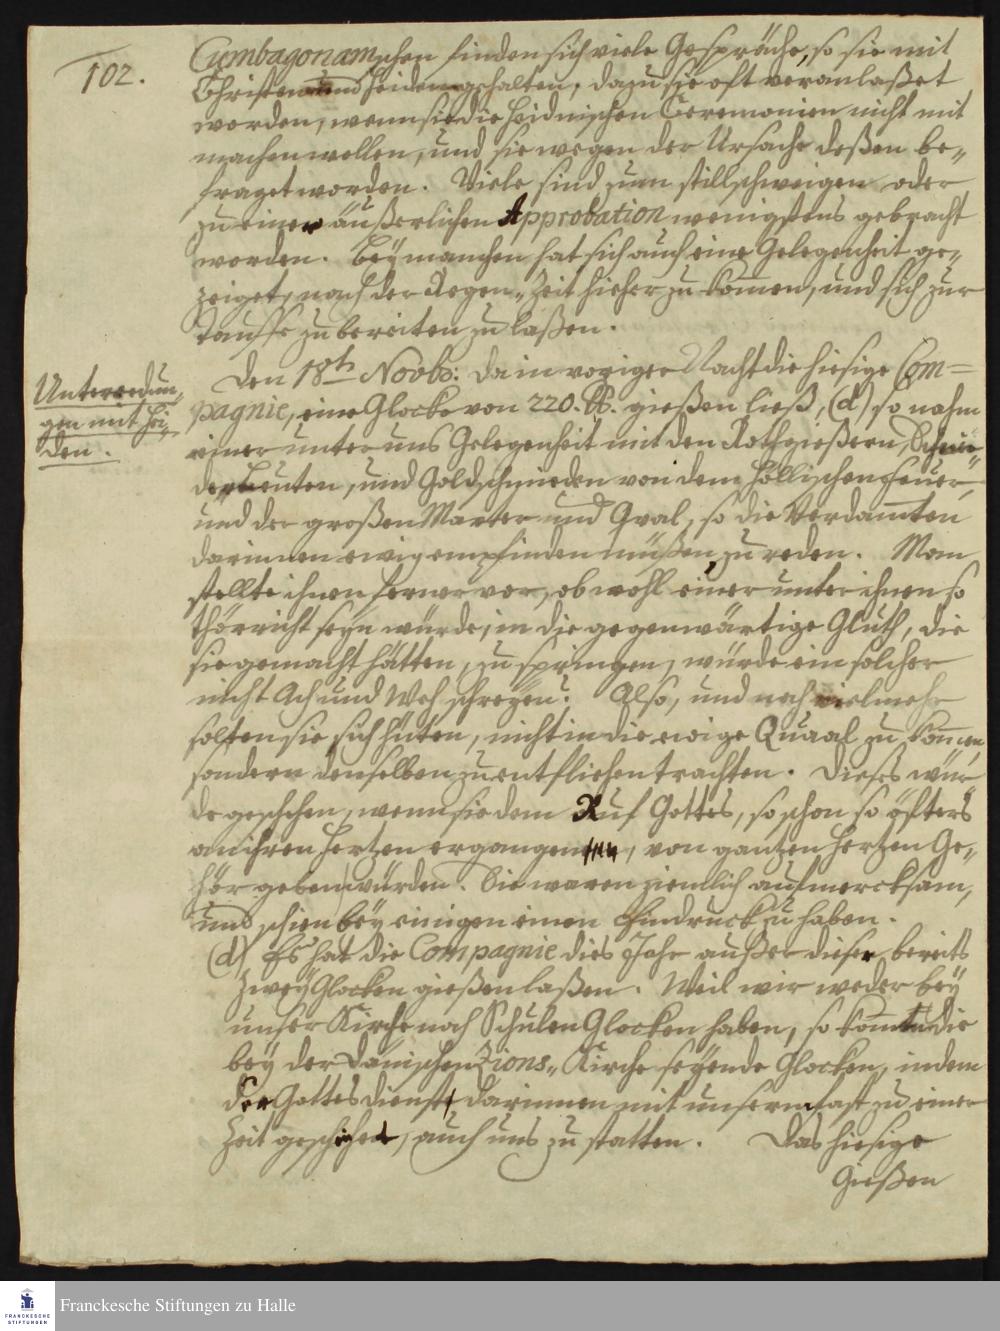 102.
Cumbagonamschen finden sich viele Gespräche, so sie mit
Christen und Heiden gehalten, dazu sie oft veranlaßet
worden, wenn sie die Heidnischen Ceremonien nicht mit
machen wollen, und sie wegen der Ursache deßen be„
fraget worden. Viele sind zum stillschweigen oder
zu einer äußerlichen Approbation wenigstens gebracht
worden. Bey manchen hat sich auch eine Gelegenheit ge„
zeiget, nach der Regen„Zeit hieher zu kommen, und sich zur
Tauffe zu bereiten zu laßen.
Unterredun„
gen mit Hei„
den.
Den 18th Novbr: Da in voriger Nacht die hiesige Com=
pagnie, eine Glocke von 220. ℔. gießen ließ, (d) so nahm
einer unter uns Gelegenheit mit den Rothgießern,
und Goldschmieden von dem Höllischen Feuer,
und der großen Marter und Qval, so die Verdamten
darinnen ewig empfinden müßen, zu reden. Man
stellte ihnen ferner vor, ob wohl einer unter ihnen so
thörricht seyn würde, in die gegenwärtige Gluth, die
sie gemacht hätten, zu springen, würde ein solcher
nicht Ach und Weh schreyen? Also, und noch vielmehr
solten sie sich hüten, nicht in die ewige Quaal zu kommen,
sondern denselben zu entfliehen trachten. Dieses wür„
de geschehen, wenn sie dem Ruf Gottes, so schon so öfters
an ihren Hertzen ergangen, von gantzen Hertzen Ge„
hör geben würden. Sie waren ziemlich aufmercksam,
und schien bey einigen einen Eindruck zu haben.
(d) Es hat die Compagnie dies Jahr außer dieser bereits
zwey Glocken gießen laßen. Weil wir weder bey
unser Kirche noch Schulen Glocken haben, so komt die
bey der Dänischen Zions„Kirche seyende Glocken, indem
der Gottesdienst darinnen mit unserm fast zu einer
Zeit geschiehet, auch uns zu statten. Das hiesige
Gießen
FRANCKESCHE
STIFTUNGEN
Franckesche Stiftungen zu Halle